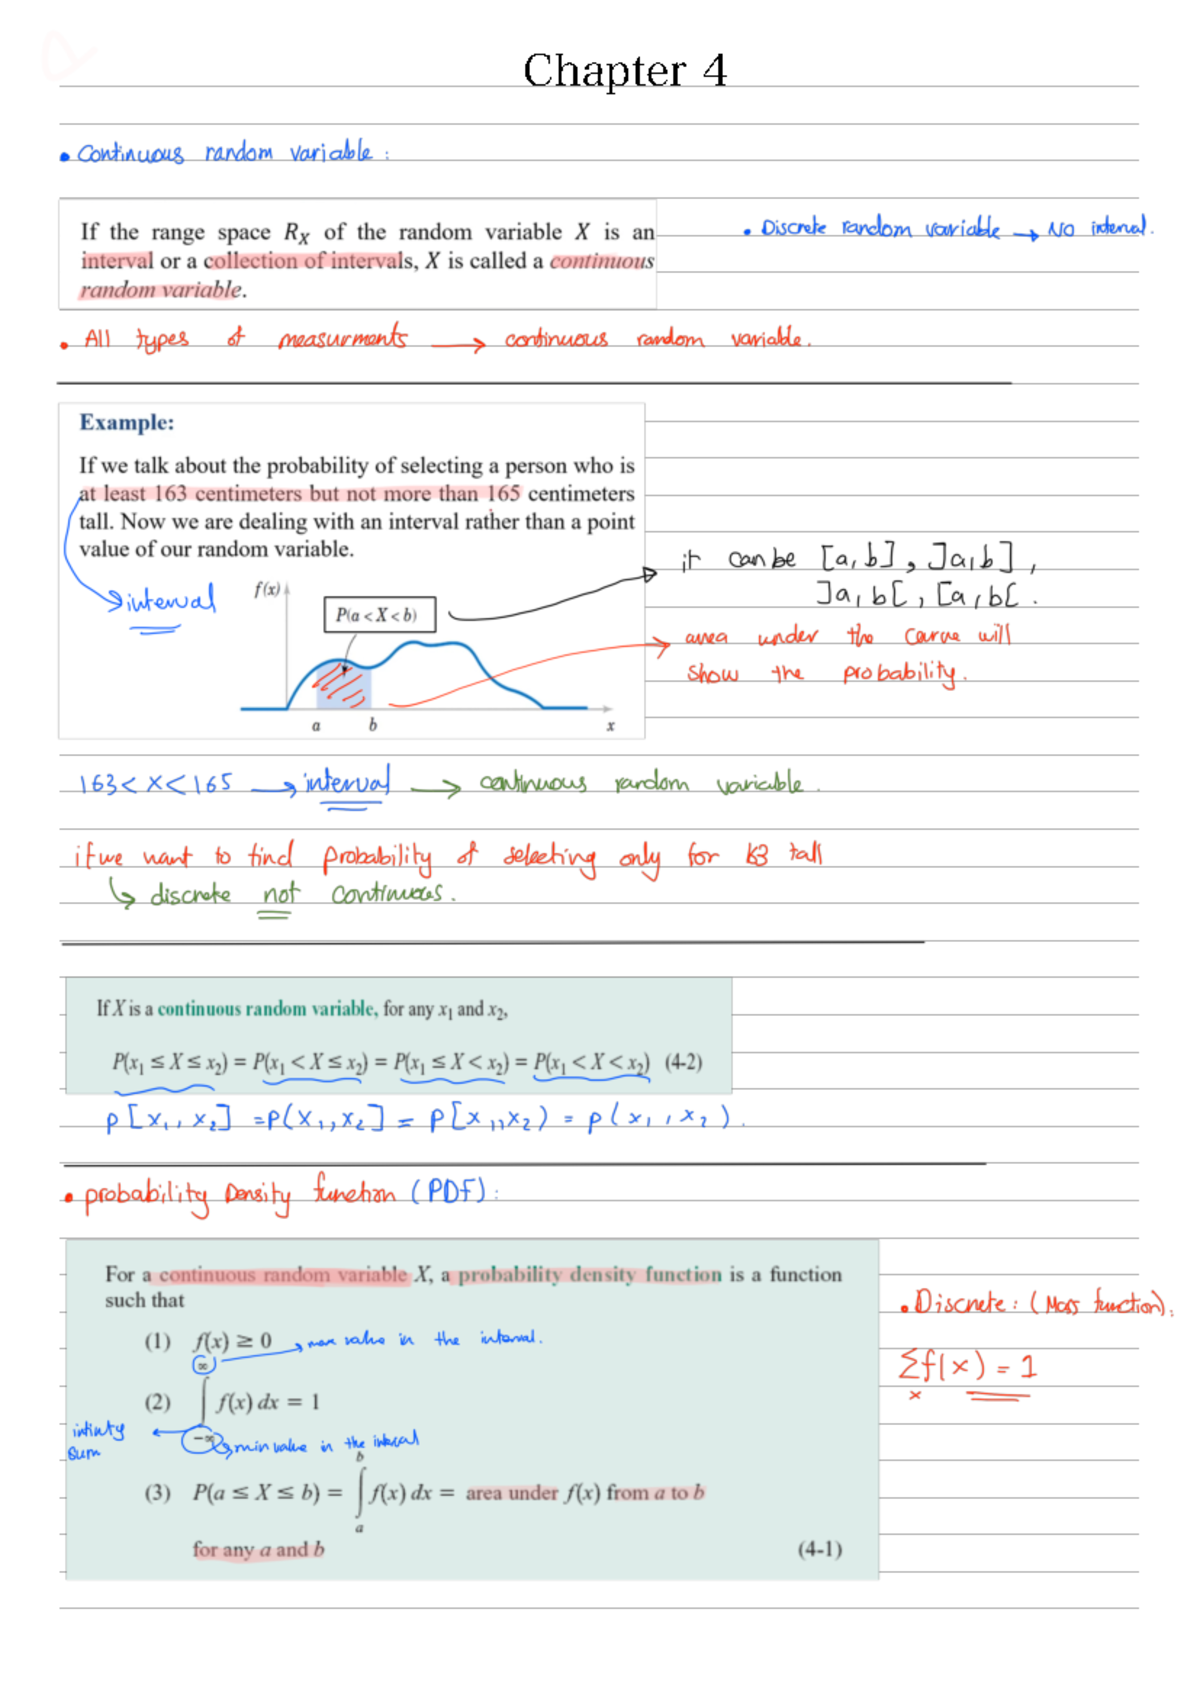 Chapter 4
• Continuous random variable :
If the range space RX of the random variable X is an
interval or a collection of intervals, X is called a continuous
random variable.
• Discrete random variable → No interval.
• All types of measurments → continuous random variable.
Example:
If we talk about the probability of selecting a person who is
at least 163 centimeters but not more than 165 centimeters
tall. Now we are dealing with an interval rather than a point
value of our random variable.
interval
f(x)
P(a < X < b)
a b x
it can be [a,b], ]a,b],
]a,b[, [a,b[.
area under the curve will
show the probability.
163 < x < 165 → interval → continuous random variable.
if we want to find probability of selecting only for 163 tall
↳ discrete not continuous.
If X is a continuous random variable, for any x₁ and x₂,
P(x₁ ≤ X ≤ x₂) = P(x₁ < X ≤ x₂) = P(x₁ ≤ X < x₂) = P(x₁ < X < x₂) (4-2)
P[x₁, x₂] = P(x₁, x₂] = P[x₁, x₂) = P(x₁, x₂).
• probability Density function (PDF):
For a continuous random variable X, a probability density function is a function
such that
(1) f(x) ≥ 0
max value in the interval.
(2) ∫ f(x) dx = 1
∞
-∞
infinty
sum
min value in the interval
(3) P(a ≤ X ≤ b) = ∫ f(x) dx = area under f(x) from a to b
b
a
for any a and b (4-1)
• Discrete : (Mass function).
Σf(x) = 1
x